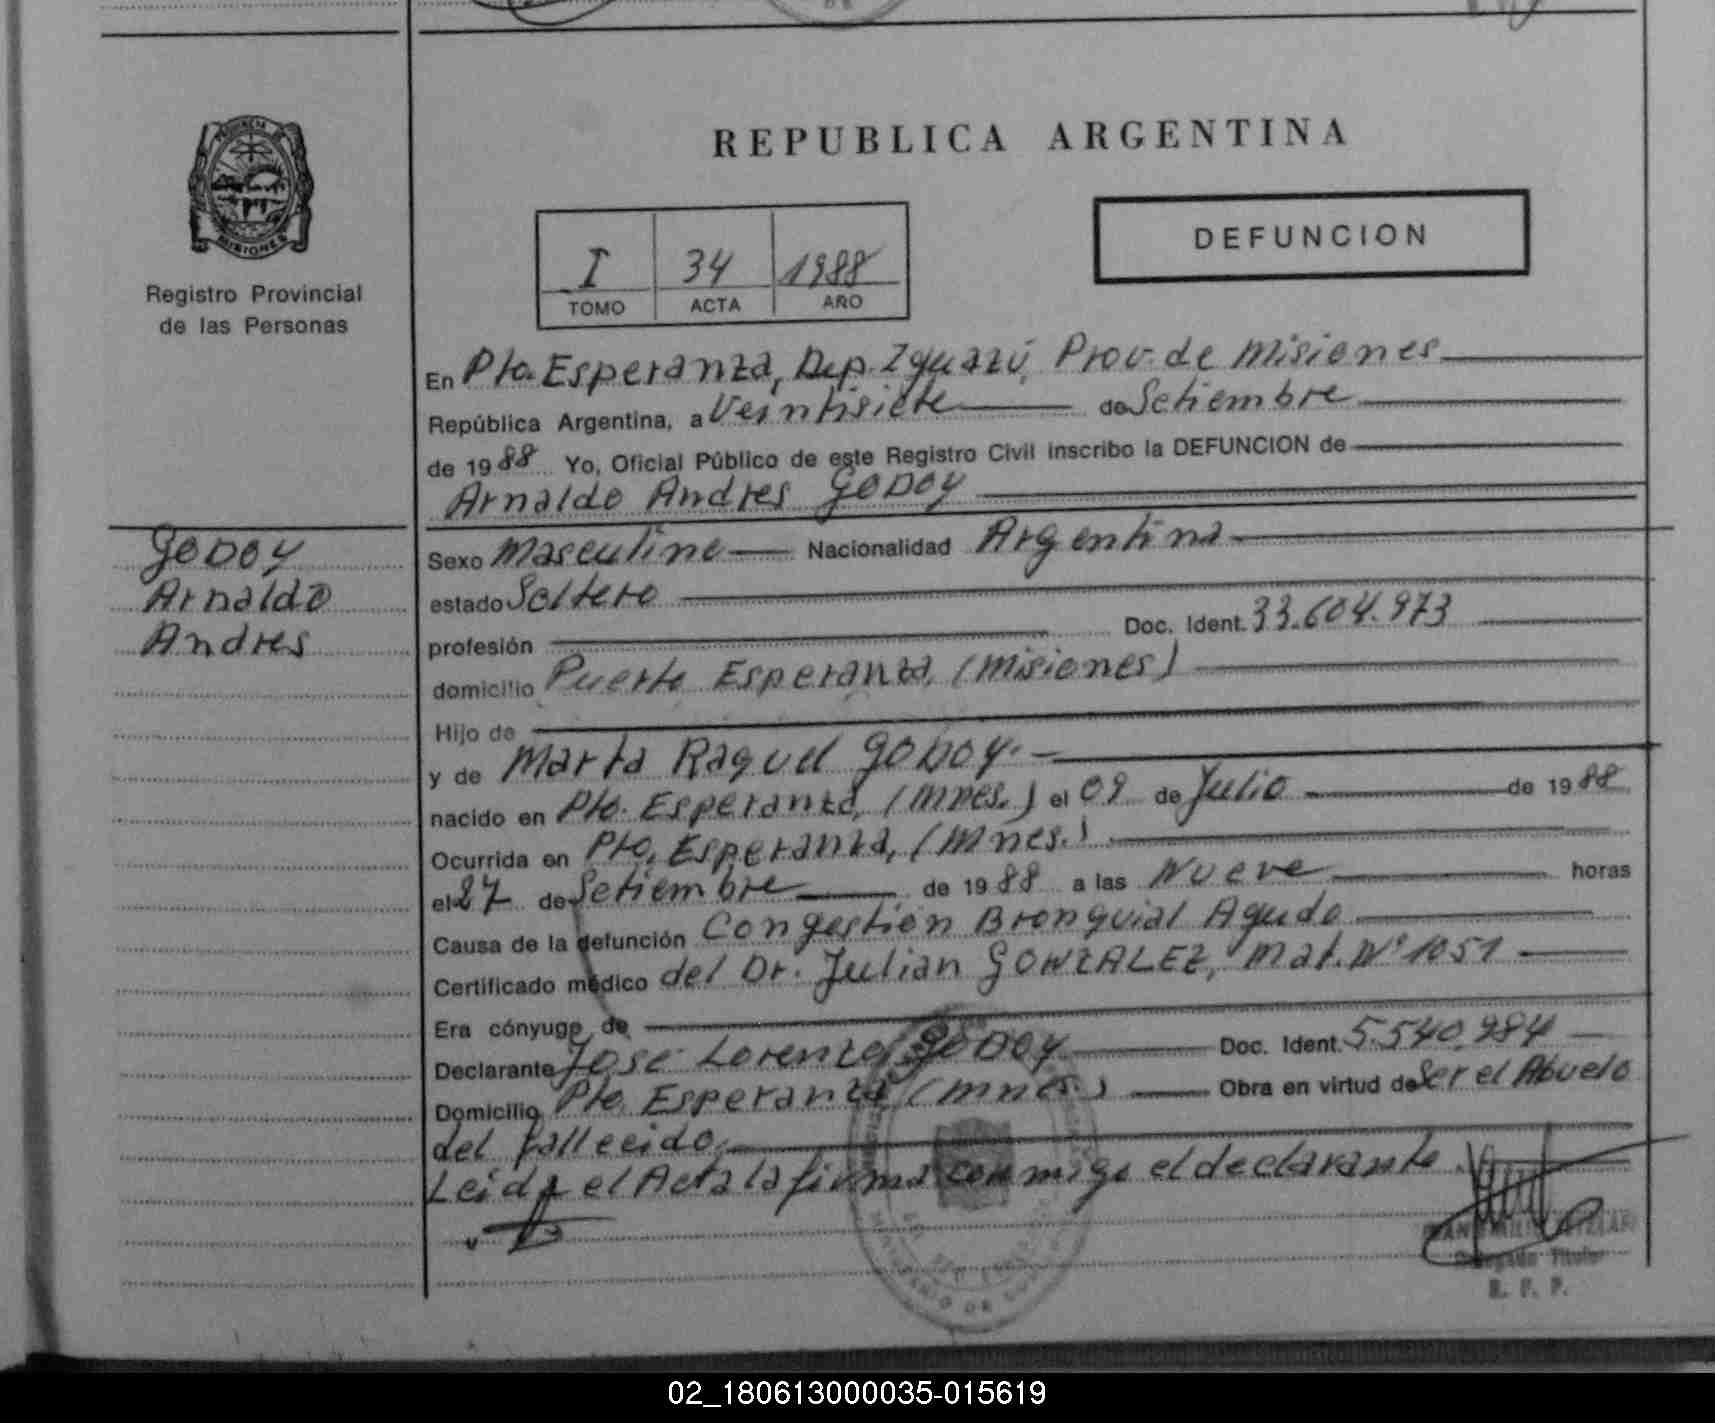 PROVINCIA DE
MISIONES
Registro Provincial
de las Personas
GODOY
Arnaldo
Andres
REPUBLICA ARGENTINA
I 34 1988
TOMO ACTA AÑO
DEFUNCION
En Pto. Esperanza, Dep. Iguazú, Prov. de Misiones
República Argentina, a Veintisiete de Setiembre
de 1988 Yo, Oficial Público de este Registro Civil inscribo la DEFUNCION de
Arnaldo Andres GODOY
Sexo Masculino Nacionalidad Argentina
estado Soltero
profesión Doc. Ident. 33.604.973
domicilio Puerto Esperanza, (Misiones)
Hijo de
y de Marta Raquel GODOY.
nacido en Pto. Esperanza, (Mnes.) el 09 de Julio de 1988
Ocurrida en Pto. Esperanza, (Mnes.)
el 27 de Setiembre de 1988 a las Nueve horas
Causa de la defunción Congestión Bronquial Aguda
Certificado médico del Dr. Julian GONZALEZ, Mat. Nº 1051
Era cónyuge de
Declarante José Lorenzo GODOY Doc. Ident. 5.540.984
Domicilio Pto. Esperanza (Mnes.) Obra en virtud de Ser el Abuelo
del fallecido,
Leida el Acta la firma conmigo el declarante.
Delegado Titular
R. P. P.
02_180613000035-015619